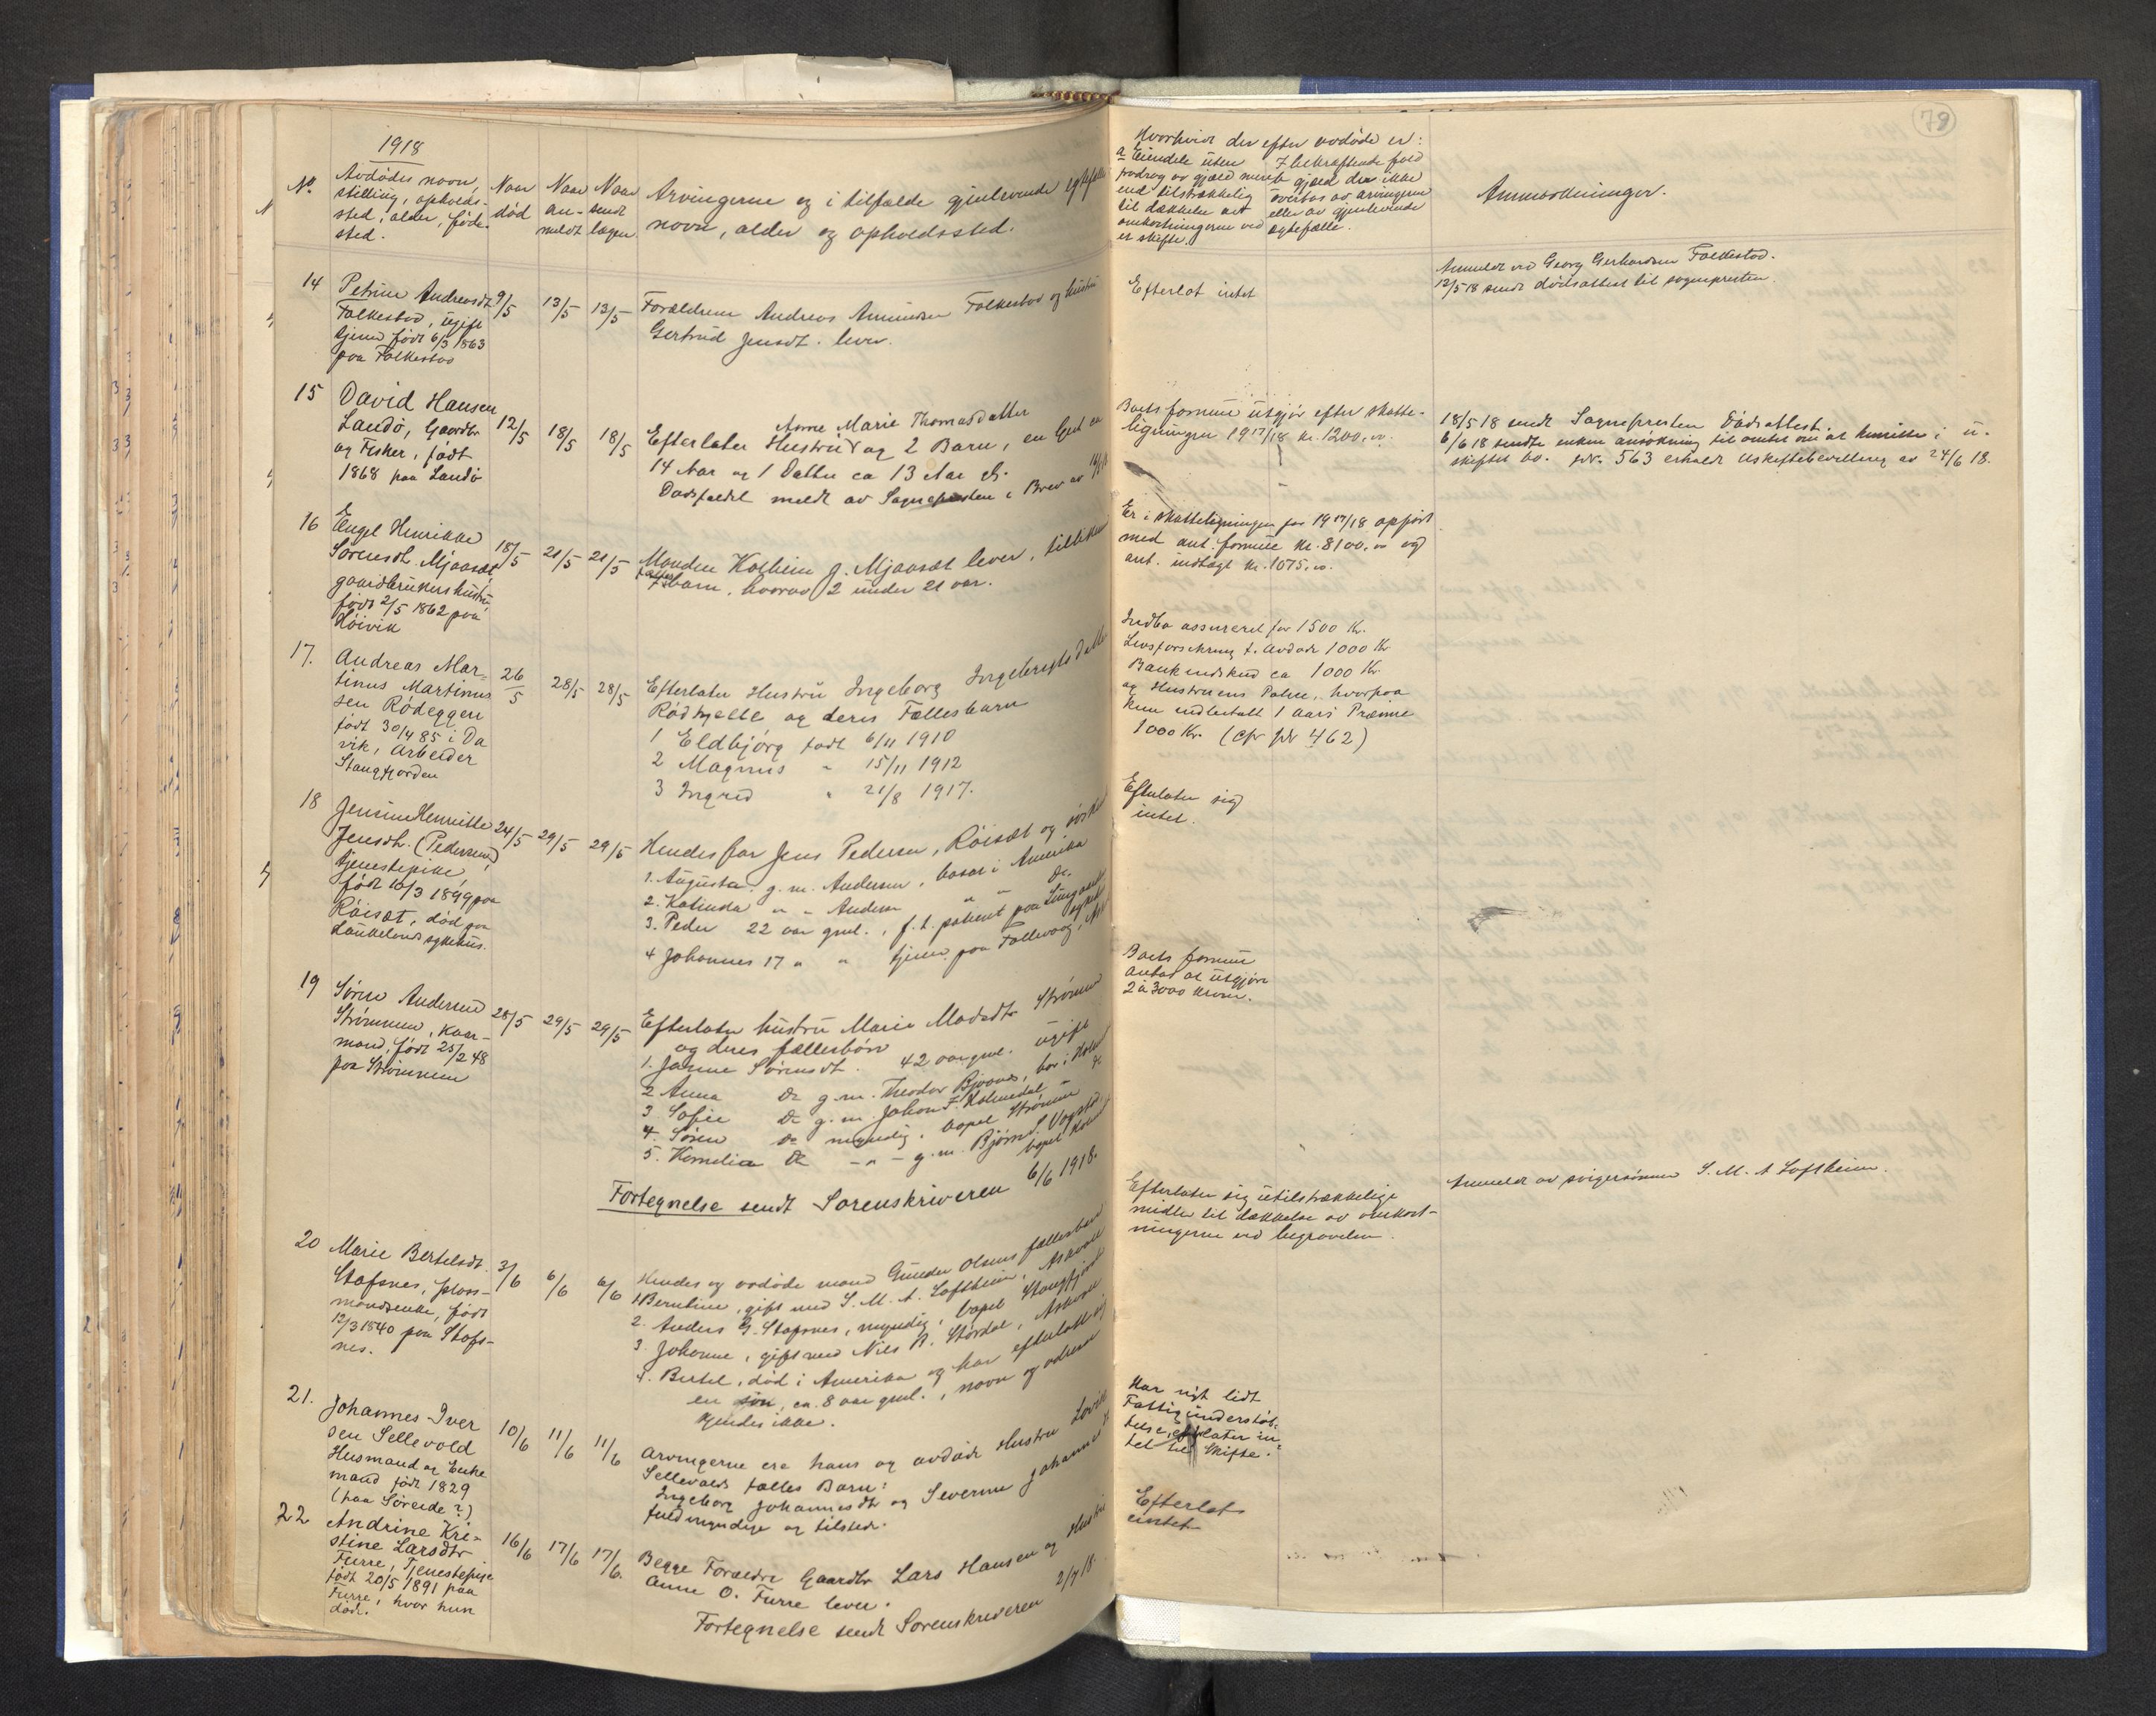 79
1918
No.
Avdødes navn,
stilling, opholds-
sted, alder, føde-
sted.
Naar
død
Naar
an-
meldt
Naar
sendt
lægen
Arvingerne og i tilfælde gjenlevende
navn, alder og opholdssted.
Hvorhvidt der efter avdøde er:
a Eiendele uten
fradrag av gjæld mere
end tilstrækkelig
til dækkelse av
omkostningerne ved
et skifte.
gjæld der ikke
overtas av arvingerne
eller av gjenlevende
egtefælle.
Anmerkninger.
14
Petrine Andreasdt.
Falkestad, ugift
tjener født 6/3 1863
paa Falkestad
9/5
13/5
13/5
Forældrene Andreas Amundsen Falkestad og hustru
Gertrud Jensdt. lever.
Efterlot intet
Anmeldt ved Georg Gerhardsen Falkestad.
13/5 18 sendt dødsattest til sognepresten.
15
David Hansen
Landø, Gaardbr
og Fisker, født
1868 paa Landø
12/5
18/5
18/5
Anne Marie Thomasdatter
Efterlater Hustru og 2 Barn, en Gut
14 Aar og 1 Datter ca 13 Aar gl.
Dødsfaldet meldt av Sognepresten i Brev av
Boets formue utgjør efter skatte-
ligningen 1917/18 kr. 1200,00.
18/5 18 sendt Sognepresten Dødsattest.
6/6 18 sendte enken ansøkning til amtet om at hensitte i u-
skiftet bo. jnr. 563 erholdt Uskiftebevilling av 24/6 18.
16
Engel Henrikke
Sørensdt. Mjaaset
gaardbrukers hustru
født 2/5 1862 paa
Høivik
18/5
21/5
21/5
Manden Kolbein J. Mjaaset lever, tillikemed
fælles
7 barn, hvorav 2 under 21 aar.
Er i skatteligningen for 1917/18 opført
med ant. formue kr. 8100,00 og
ant. indtægt kr. 1075,00.
17.
Andreas Mar-
tinus Martinus
sen Rødeggen
født 30/4 85 i Da
vik, Arbeider
Stangfjorden
26/5
28/5
28/5
Efterlater Hustru Ingeborg Ingebrigtsdatter
Rødhjelle og deres Fællesbarn
1 Eldbjørg født 6/11 1910
2 Magnus " 15/11 1912
3 Ingrid " 21/8 1917.
Indbo assureret for 1500 Kr.
Livsforsikring f. Avdøde 1000 Kr
Bankindskud ca 1000 Kr.
og Hustruens Police, hvorpaa
kun indbetalt 1 Aars Præmie
1000 Kr. (cfr jnr 462)
18
Jensine Henriette
Jensdt. (Pedersen)
tjenestepike,
født 10/3 1899 paa
Røiset, død paa
Haukelands sykehus.
24/5
29/5
29/5
Hendes far Jens Pedersen, Røiset og
1. Augusta. g. m. Andersen, bosat i Amerika
2. Katinda " " Andersen " do.
3. Peder 22 aar gml., f. t. patient paa
4 Johannes 17 " " tjener paa
Efterlater sig
intet.
19
Søren Andersen
Strømmen, Kaar-
mand, født 25/2 48
paa Strømmen
28/5
29/5
29/5
Efterlater hustru Marie Madsdtr Strømmen
og deres fællesbørn
1. Janne Sørensdt. 42 aar gml. ugift
2 Anna Do g. m. Theodor Bjoanes, bor i
3 Sofie Do g. m. Johan F. Holmedal " do
4. Søren do myndig, bopæl Strømmen
5. Kornelia Do - " - g. m. Bjørn S.
Fortegnelse sendt Sorenskriveren 6/6 1918.
Boets formue
antas at utgjøre
2 à 3000 kroner.
20
Marie Bertelsdt.
Stafsnes, plass-
mandsenke, født
12/3 1840 paa Stafs-
nes.
3/6
6/6
6/6
Hendes og avdøde mand Gunder Olsens fællesbarn
1 Berntine, gift med S. M. A. Loftheim, Askvoll
2. Anders G. Stafsnes, myndig, bopæl Stangfjord
3. Johanne, gift med Nils R. Stordal, Askvoll
4. Bertel, død i Amerika og har efterlatt sig
en søn, ca. 8 aar gml., navn og adresse
kjendes ikke.
Efterlater sig utilstrækkelige
midler til dækkelse av omkost-
ningerne ved begravelsen.
Anmeldt av svigersønnen S. M. A Loftheim.
21.
Johannes Iver
sen Sellevold
Husmand og Enke
mand født 1829
(paa Søreide?)
10/6
11/6
11/6
Arvingerne ere hans og avdøde Hustru
Sellevolds fælles Barn:
Ingeborg Johannesdtr og Severine Johannesdt
fuldmyndige og tilstede.
Har nyt lidt
Fattigunderstøt-
telse, efterlater in-
tet til Skifte.
22
Andrine Kri-
stine Larsdtr
Furre, Tjenestepige
født 20/5 1891 paa
Furre, hvor hun
døde.
16/6
17/6
17/6.
Begge Forældre Gaardbr Lars Hansen og Hustru
Anne O. Furre lever.
Fortegnelse sendt Sorenskriveren 2/7 18.
Efterlot
intet